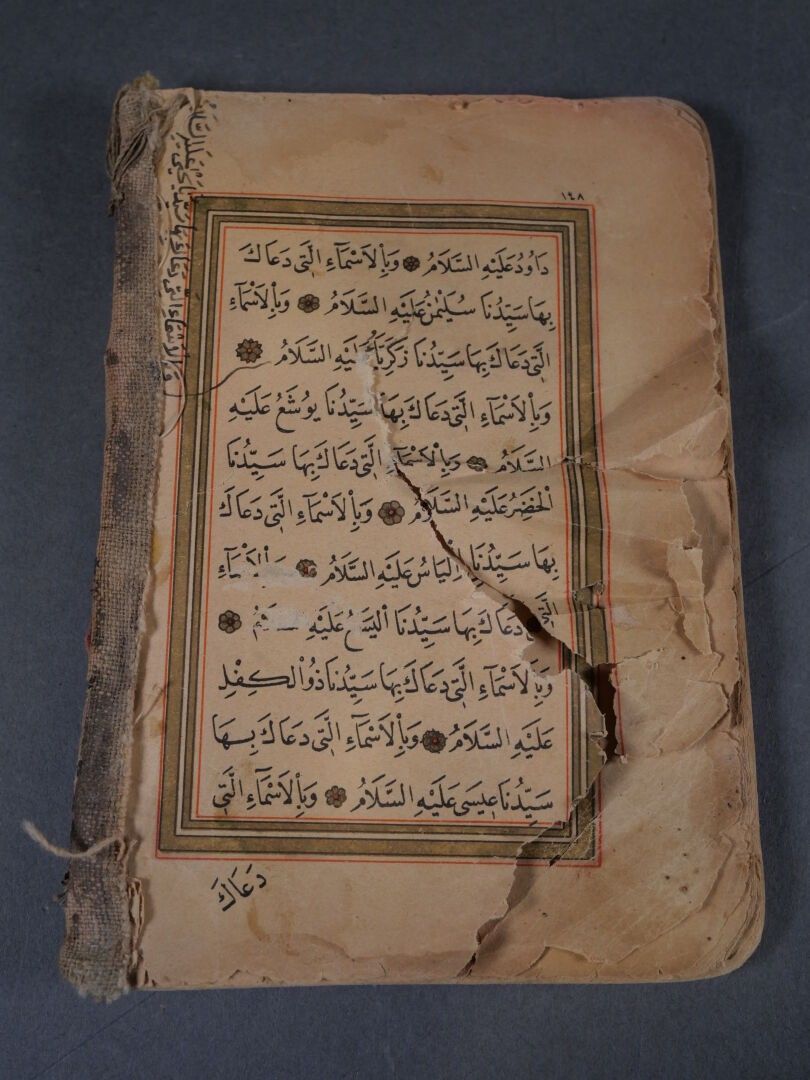 ١٤٨
دَاوُدُ عَلَيْهِ السَّلَامُ وَبِالْاَسْمَآءِ الَّتِى دَعَاكَ
بِهَا سَيِّدُنَا سُلَيْمٰنُ عَلَيْهِ السَّلَامُ وَبِالْاَسْمَآءِ
الَّتِى دَعَاكَ بِهَا سَيِّدُنَا زَكَرِيَّا عَلَيْهِ السَّلَامُ
وَبِالْاَسْمَآءِ الَّتِى دَعَاكَ بِهَا سَيِّدُنَا يُوشَعُ عَلَيْهِ
السَّلَامُ وَبِالْاَسْمَآءِ الَّتِى دَعَاكَ بِهَا سَيِّدُنَا
الْخَضِرُ عَلَيْهِ السَّلَامُ وَبِالْاَسْمَآءِ الَّتِى دَعَاكَ
بِهَا سَيِّدُنَا اِلْيَاسُ عَلَيْهِ السَّلَامُ
الَّتِى دَعَاكَ بِهَا سَيِّدُنَا الْيَسَعُ عَلَيْهِ
وَبِالْاَسْمَآءِ الَّتِى دَعَاكَ بِهَا سَيِّدُنَا ذُو الْكِفْلِ
عَلَيْهِ السَّلَامُ وَبِالْاَسْمَآءِ الَّتِى دَعَاكَ بِهَا
سَيِّدُنَا عِيسَى عَلَيْهِ السَّلَامُ وَبِالْاَسْمَآءِ الَّتِى
دَعَاكَ
وَبِالْاَسْمَآءِ الَّتِى دَعَاكَ بِهَا سَيِّدُنَا يَحْيَى